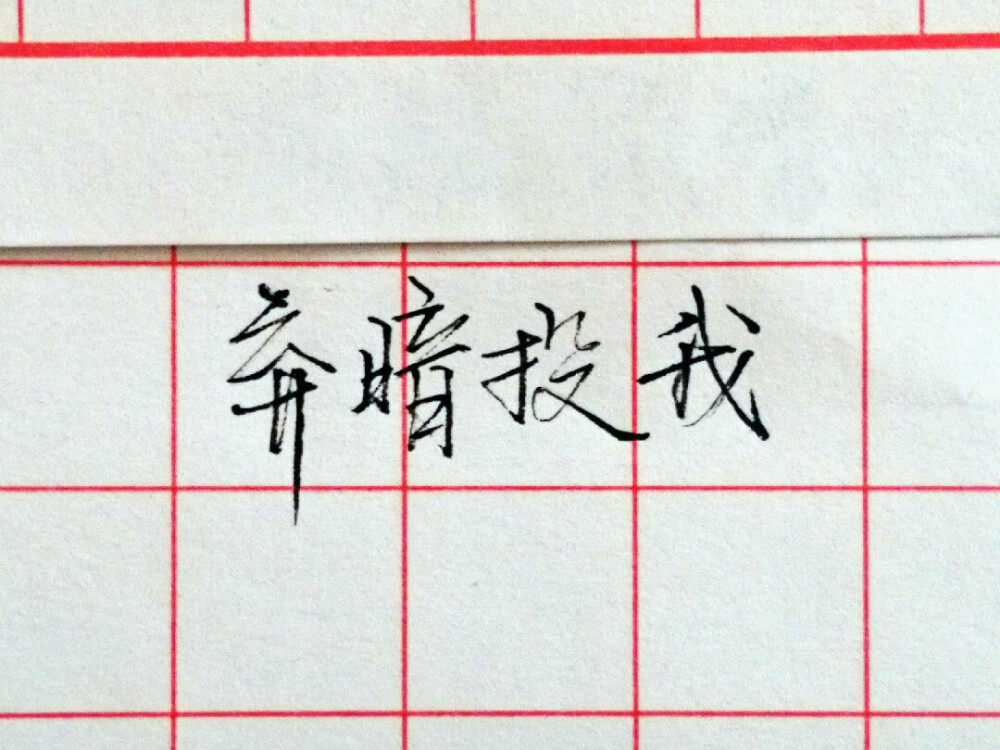 弃暗投我